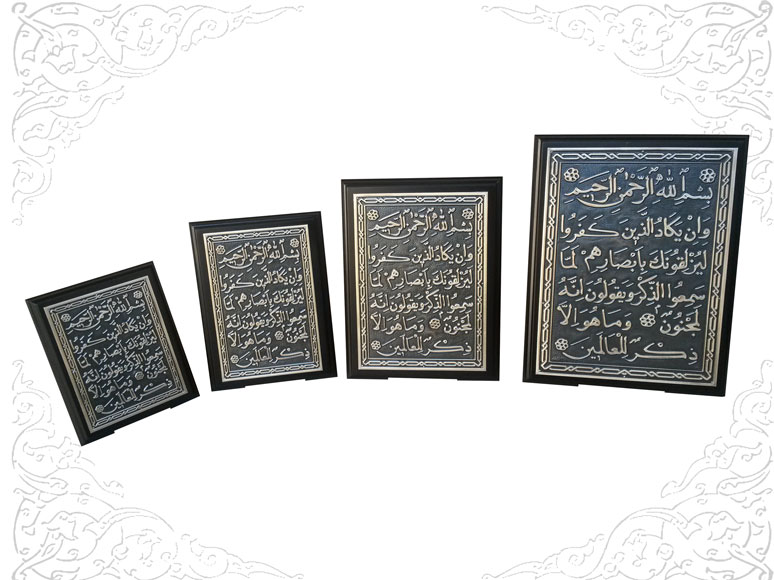 بسم الله الرحمن الرحيم
وإن يكاد الذين كفروا
ليزلقونك بأبصارهم لما
سمعوا الذكر ويقولون إنه
لمجنون وما هو إلا
ذكر للعالمين
بسم الله الرحمن الرحيم
وإن يكاد الذين كفروا
ليزلقونك بأبصارهم لما
سمعوا الذكر ويقولون إنه
لمجنون وما هو إلا
ذكر للعالمين
بسم الله الرحمن الرحيم
وإن يكاد الذين كفروا
ليزلقونك بأبصارهم لما
سمعوا الذكر ويقولون إنه
لمجنون وما هو إلا
ذكر للعالمين
بسم الله الرحمن الرحيم
وإن يكاد الذين كفروا
ليزلقونك بأبصارهم لما
سمعوا الذكر ويقولون إنه
لمجنون وما هو إلا
ذكر للعالمين